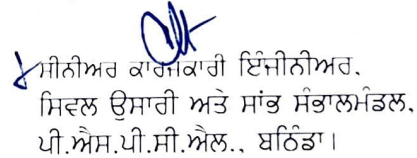 ਸੀਨੀਅਰ ਕਾਰਜਕਾਰੀ ਇੰਜੀਨੀਅਰ.
ਸਿਵਲ ਉਸਾਰੀ ਅਤੇ ਸਾਂਭ ਸੰਭਾਲਮੰਡਲ.
ਪੀ.ਐਸ.ਪੀ.ਸੀ.ਐਲ., ਬਠਿੰਡਾ।